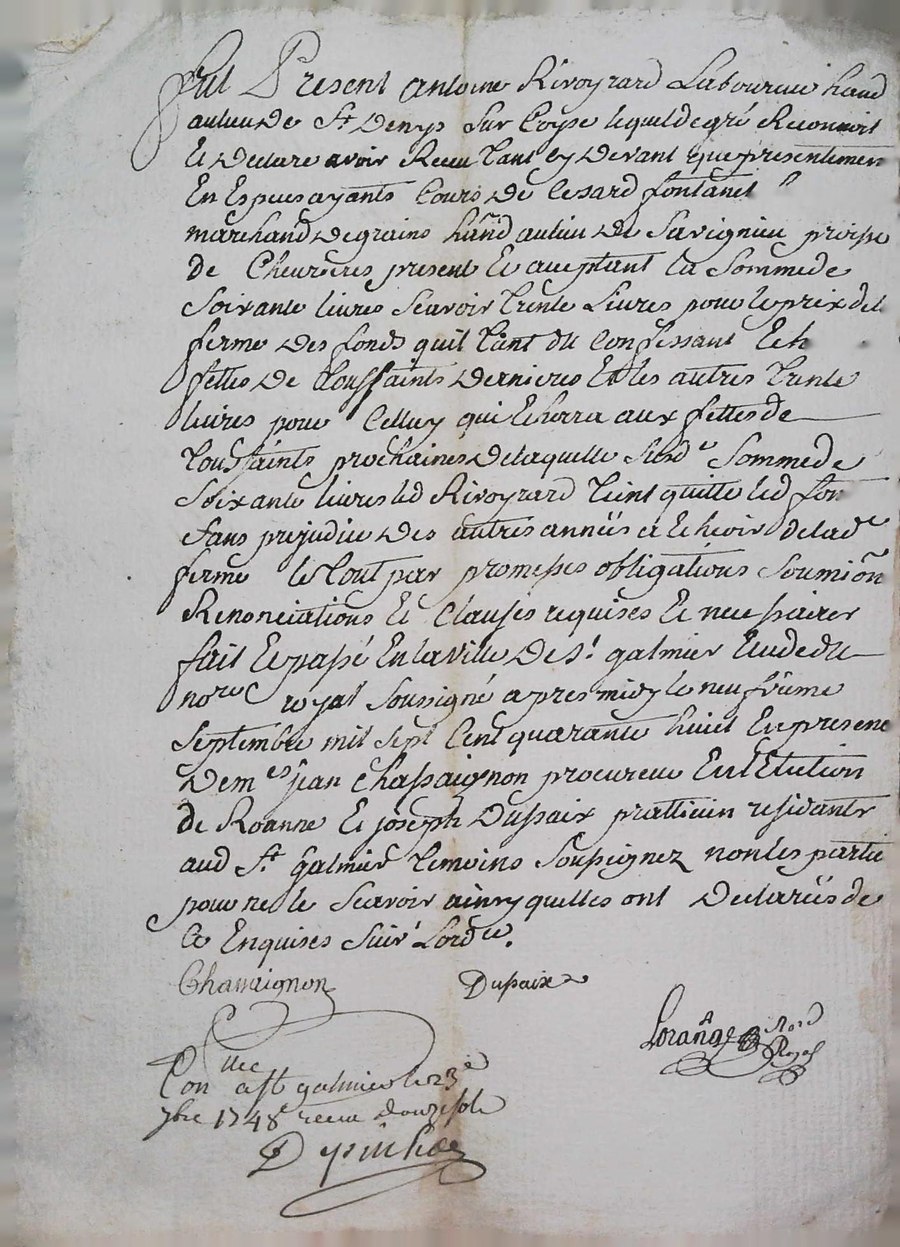 Fut Present Antoine Rivoyrard Laboureur hand
au lieu de St Denys Sur Coyse lequel de gré Reconnoit
Et Declare avoir Receu tant cy Devant que presentemen
En Especes ayants Cours De Cesard fontanet
marchand de grains hând au lieu de Savignieu proisse
de Chevrieres present Et acceptant La Somme de
Soixante livres Scavoir trente Livres pour le prix del
ferme Des fonds quil tant du Confessant Ech
fettes De toussaints Dernieres Et les autres trente
livres pour Celluy qui Echerra aux fettes de
toussaints prochaines De laquelle Susde Somme de
Soixante livres led Rivoyrard tient quitte led fon
Sans prejudice Des autres années a Echeoir de lade
ferme le tout par promesses obligations Soumiôn
Renonciations Et Clauses requises Et necessairer
fait Et passé En la ville De St galmier Etude du
nore royal Soussigné apres midy le neufvieme
Septembre mil Sept Cent quarante huict En presene
De mes jean Chassaignon procureur En l'Election
de Roanne Et joseph Dupaix pratticien residants
aud St galmier temoins Soussignez non les partie
pour ne le Scavoir ainsy quelles ont Declarées de
Ce Enquises Suivt Lordce.
Chassaignon Dupaix
Lorânge Nore
Royal
Conllé a St galmier le 23e
7bre 1748 receu douze sols